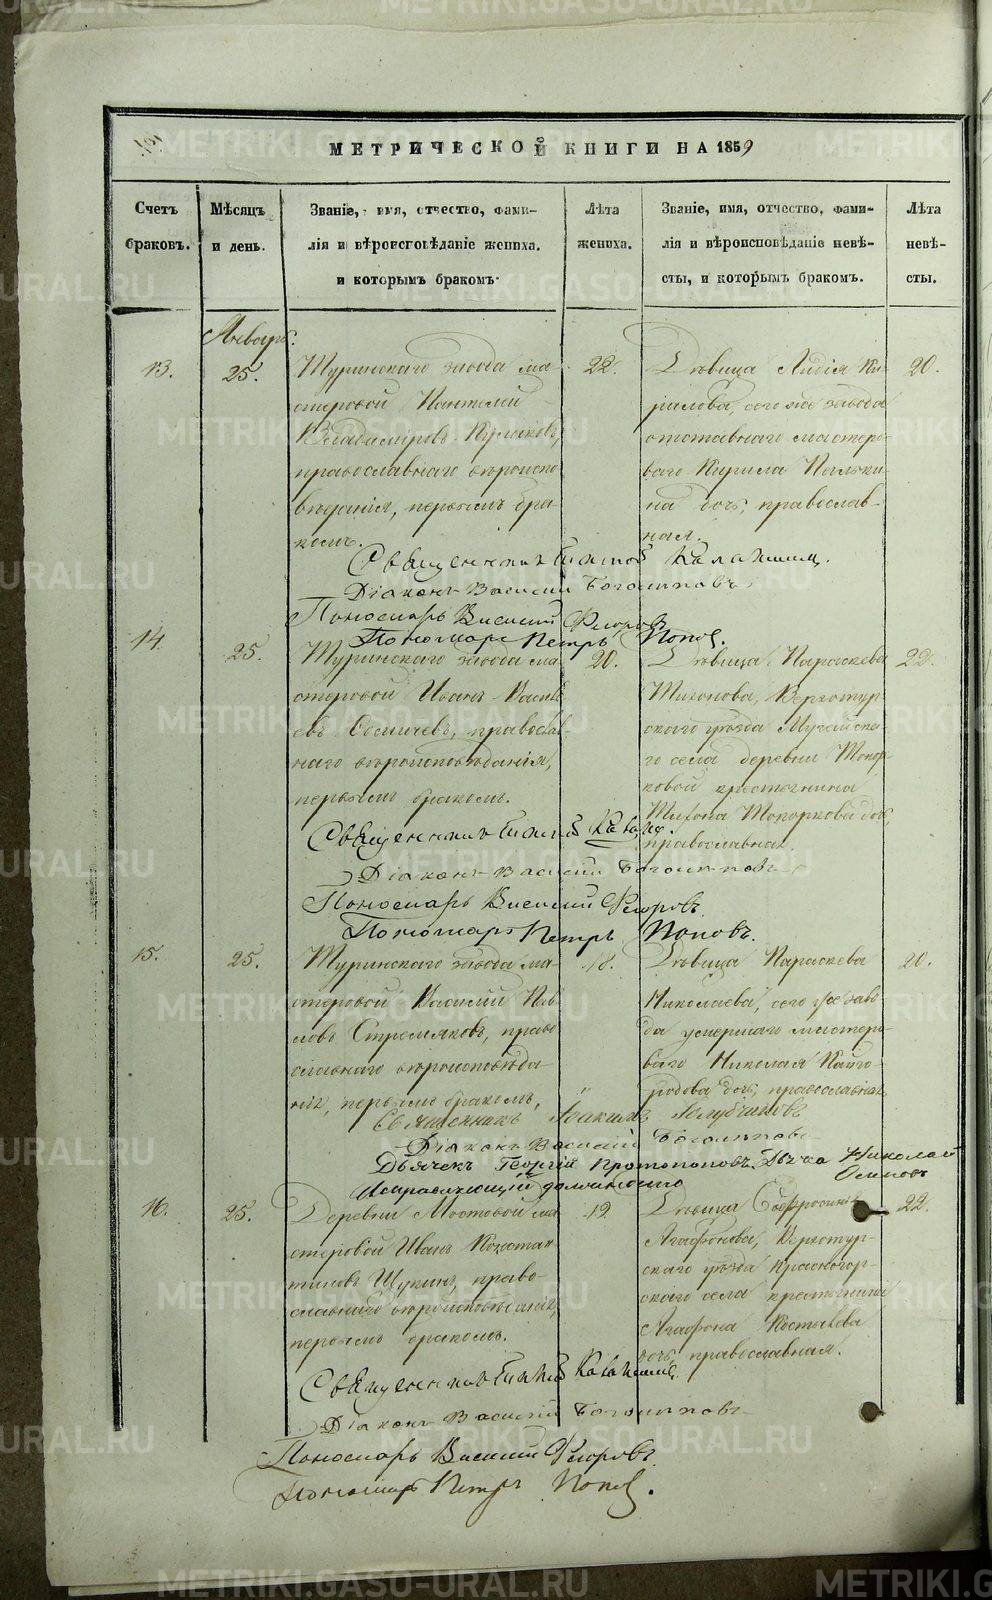 МЕТРИЧЕСКОЙ КНИГИ НА 1859
Счетъ браковъ.
Мѣсяцъ и день.
Званіе, имя, отчество, фами-
лія и вѣроисповѣданіе жениха.
и которымъ бракомъ.
Лѣта жениха.
Званіе, имя, отчество, фами-
лія и вѣроисповѣданіе невѣ-
сты, и которымъ бракомъ.
Лѣта невѣ-
сты.
Январь.
13.
25.
Туринскаго завода ма-
стеровой Пантелей
Владиміровъ Кулаковъ,
православнаго вѣроиспо
вѣданія, первымъ бра-
комъ.
22.
Дѣвица Лидія Ки-
рилова, сего же завода
отставнаго мастеро-
ваго Кирила
на дочь, православ-
ная.
20.
Священникъ
Діаконъ Василий
Пономарь Василий Флоровъ
Пономарь Петръ Попов.
14.
25.
Туринскаго завода ма
стеровой Иванъ Василь
евъ православ-
наго вѣроисповѣданія,
первымъ бракомъ.
20.
Дѣвица Параскева
Тихонова, Верхотур-
скаго уѣзда
го села деревни Топор-
ковой крестьянина
Тихона Топоркова дочь,
православная.
22.
Священникъ
Діаконъ Василий
Пономарь Василий Флоровъ
Пономарь Петръ Поповъ.
15.
25.
Туринскаго завода ма-
стеровой Василий Пав
ловъ Стремяковъ, право
славнаго вѣроисповѣда
нія, первымъ бракомъ,
18.
Дѣвица Параскева
Николаева, сего же заво
да умершаго мастеро-
ваго Николая Кайго-
родова дочь, православная
20.
Священникъ Іоакимъ
Діаконъ Василий
Дьячекъ Георгій Протопоповъ. Дьячка Николай
Осиповъ
Исправляющій должность
16.
25.
Деревни Мостовой ма
стеровой Иванъ Констан
тиновъ Щукинъ, право-
славнаго вѣроисповѣданія,
первымъ бракомъ.
19.
Дѣвица
Агафонова, Верхотур-
скаго уѣзда Красногор-
скаго села крестьянина
Агафона Костылева
дочь, православная.
22.
Священникъ
Діаконъ Василий
Пономарь Василий Флоровъ
Пономарь Петръ Попов.
METRIKI.GASO-URAL.RU